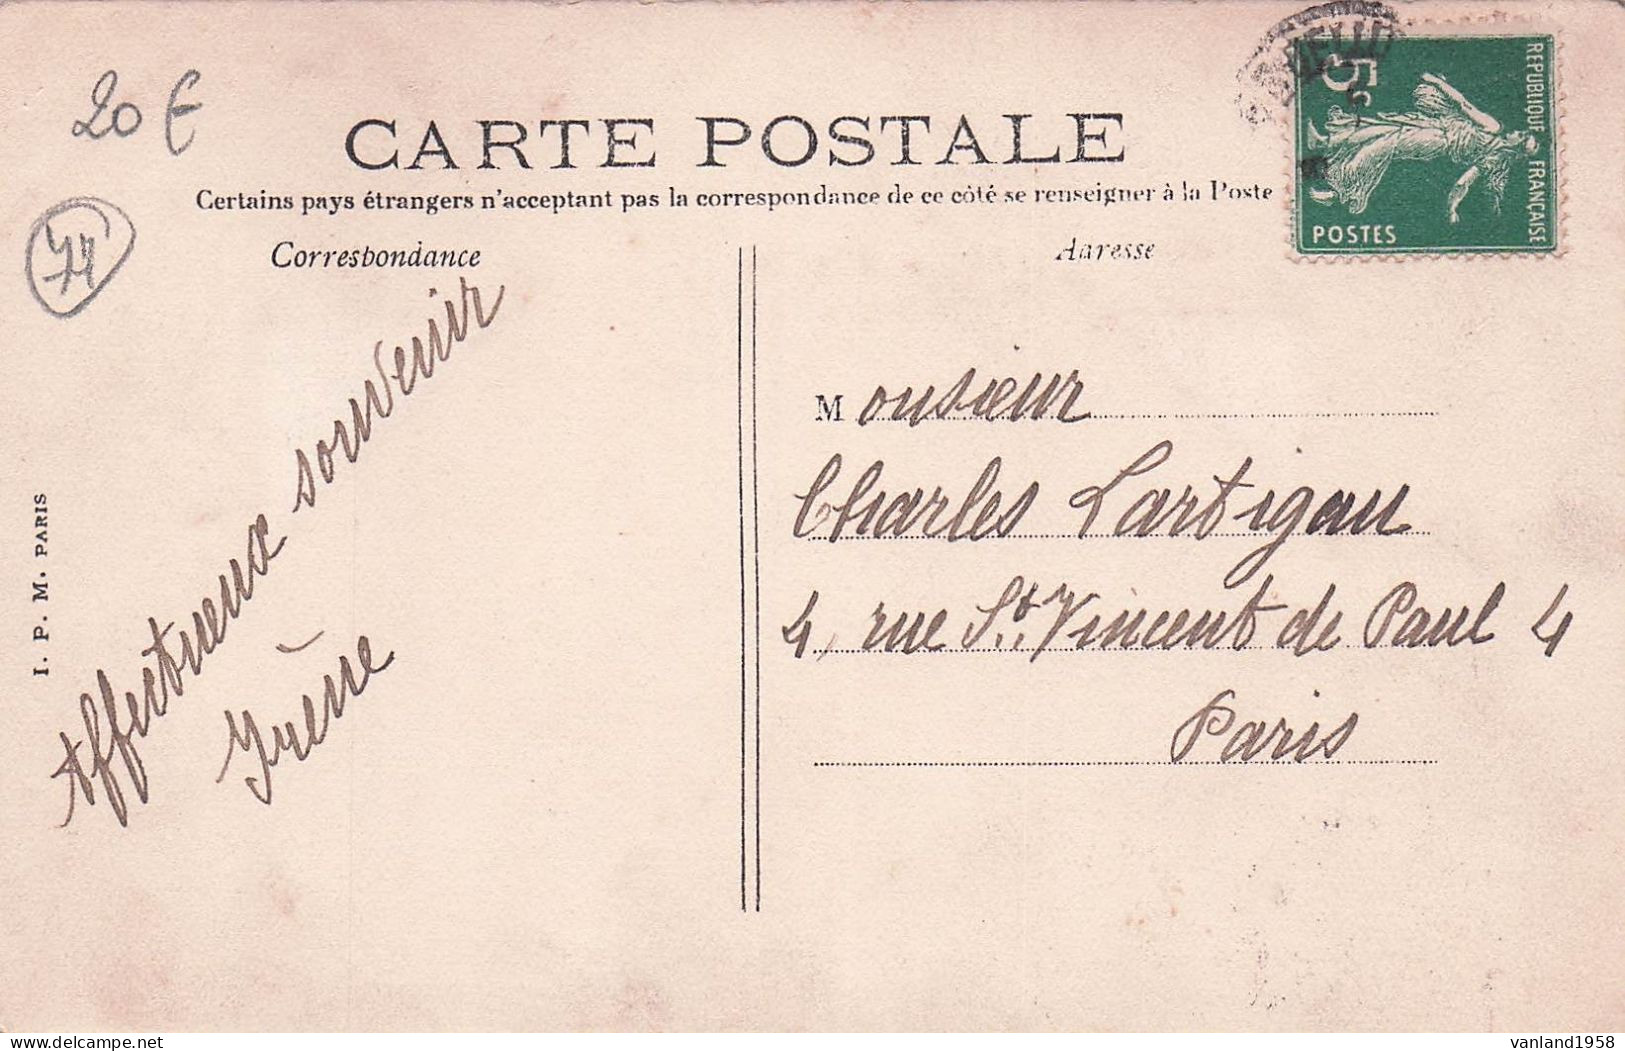 20 €
CARTE POSTALE
Certains pays étrangers n'acceptant pas la correspondance de ce côté se renseigner à la Poste
74
Correspondance
Adresse
REPUBLIQUE FRANÇAISE
5c
POSTES
Affectueux souvenir
Irène
Monsieur
Charles Lartigau
4, rue St. Vincent de Paul 4
Paris
I. P. M. PARIS
vanland1958